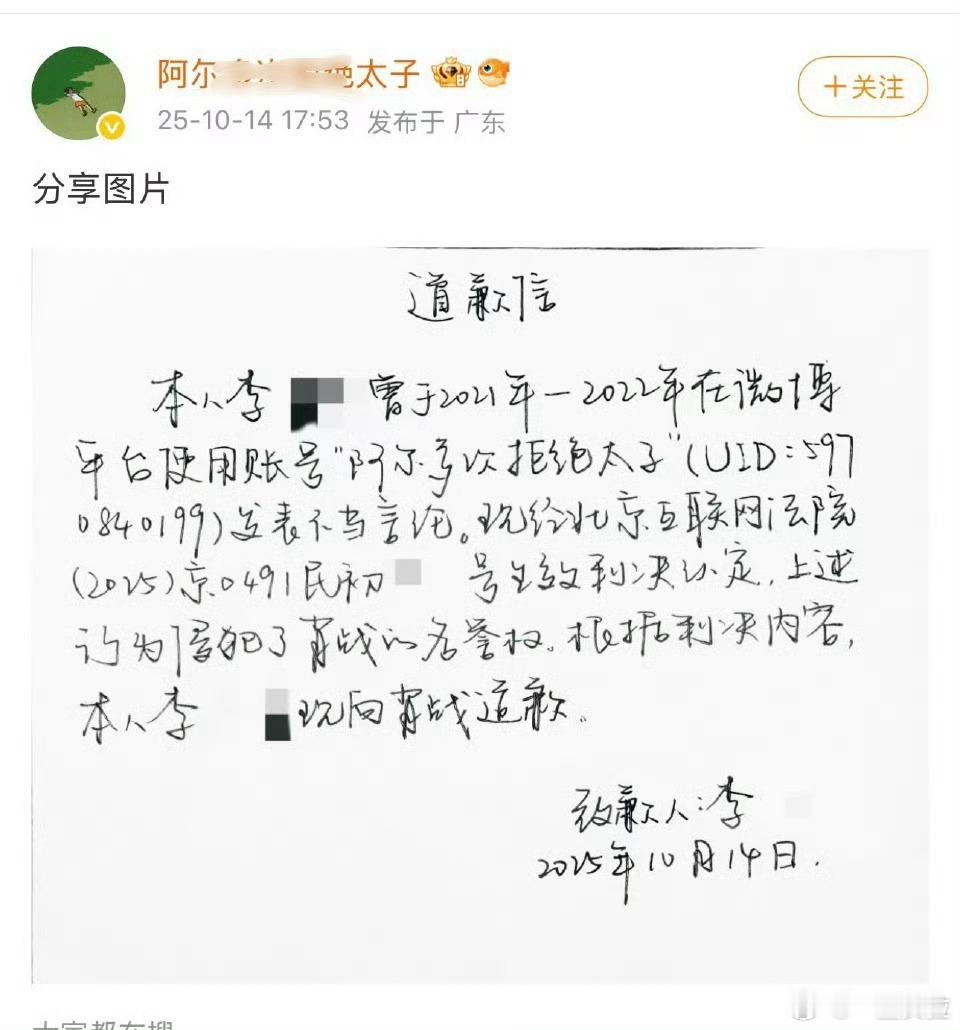 阿尔 太子
25-10-14 17:53 发布于 广东
+关注
分享图片
道歉信
本人李 曾于2021年-2022年在微博
平台使用账号“阿尔多次拒绝太子”(UID:597
0840199)发表不当言论。现经北京互联网法院
(2025)京0491民初 号生效判决认定,上述
行为侵犯了肖战的名誉权。根据判决内容,
本人李 现向肖战道歉。
致歉人:李
2025年10月14日.
大家都在搜